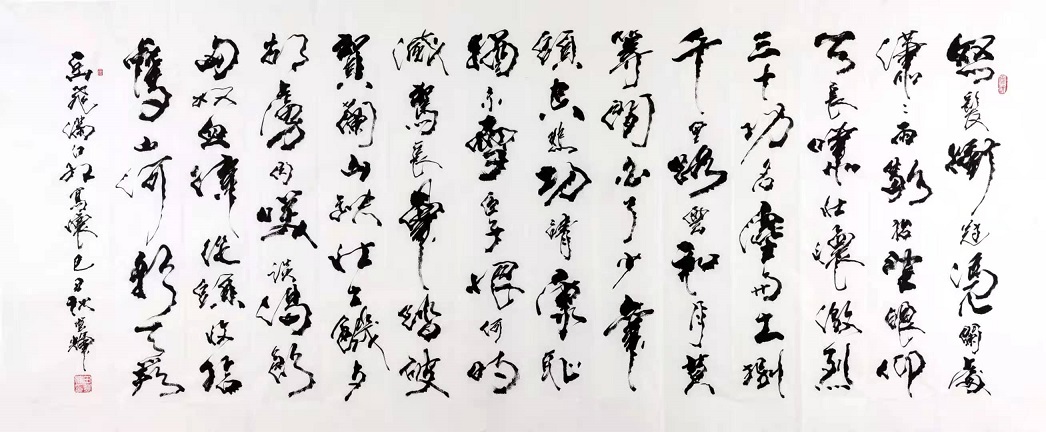 怒髮衝冠憑闌處
瀟々雨歇抬望眼仰
天長嘯壯懷激烈
三十功名塵與土捌
千里路雲和月莫
等閒白了少年
頭空悲切靖康恥
猶未雪臣子恨何時
滅駕長車踏破
賀蘭山缺壯志飢餐
胡虜肉笑談渴飲
匈奴血待從頭收拾
舊山河朝天闕
岳飛滿江紅寫懷己丑秋